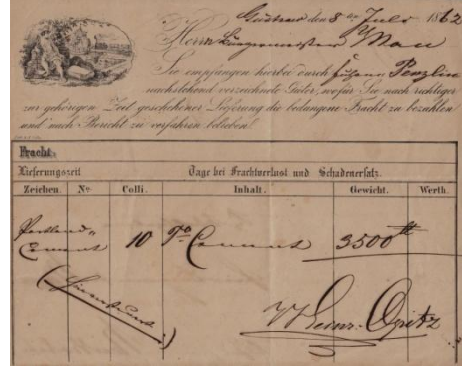 Güstrow den 8 ten July 1862
Herrn Bürgermeister Mau
Sie empfangen hierbei durch Penzlin
nachstehend verzeichnete Güter, wofür Sie nach richtiger
zur gehörigen Zeit geschehener Lieferung die bedungene Fracht zu bezahlen
und nach Bericht zu verfahren belieben!
Fracht.
Lieferungszeit Tage bei Frachtverlust und Schadenersatz.
Zeichen. No. Colli. Inhalt. Gewicht. Werth.
Portland=
Cement 10 Cement 3500 ℔
Heinr. Opitz